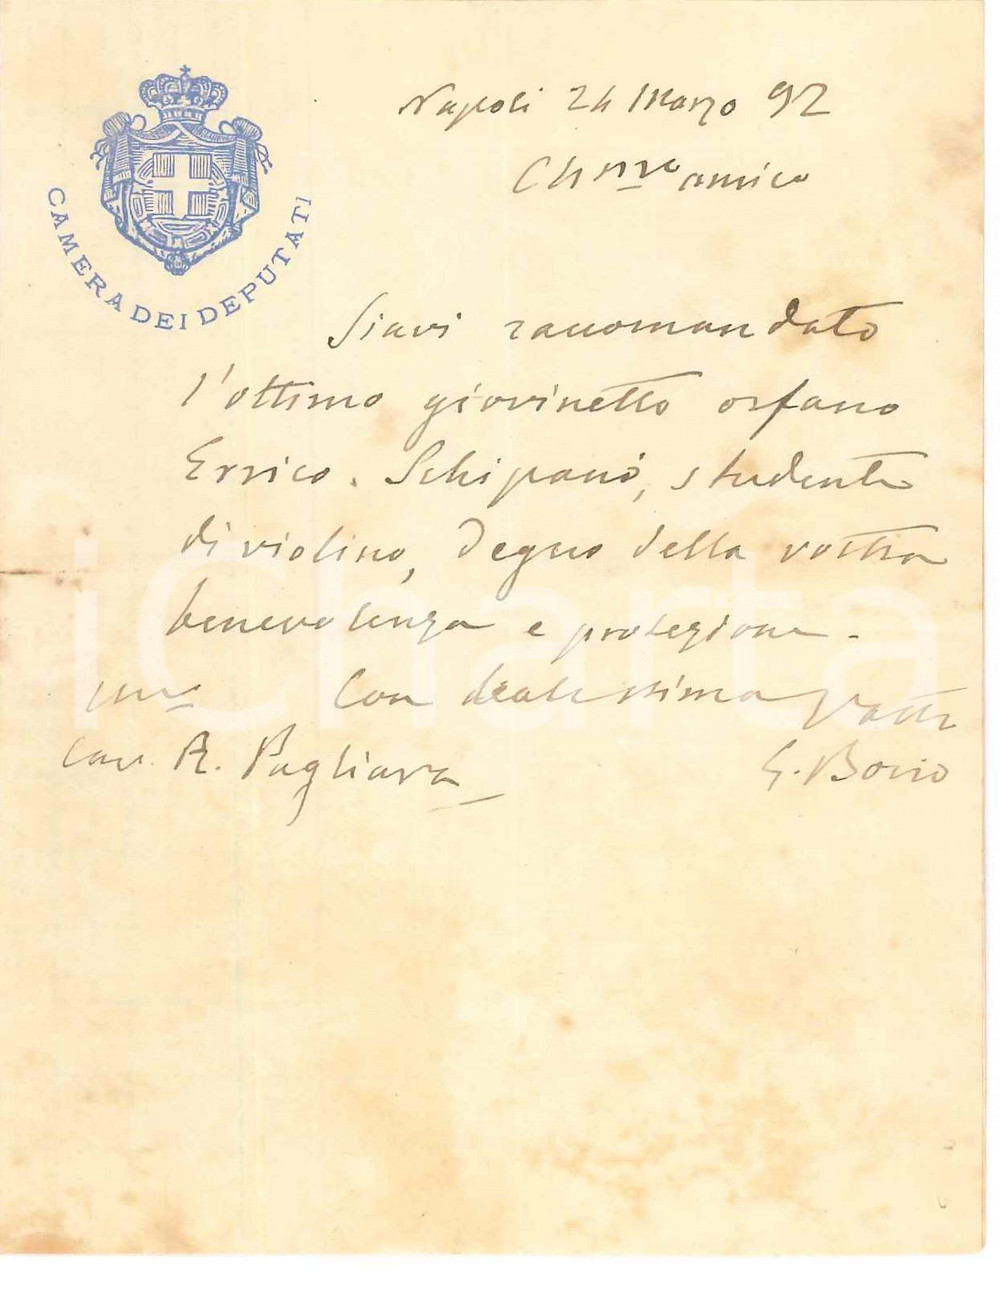 CAMERA DEI DEPUTATI
Napoli 24 Marzo 92
Ch.mo amico
Siavi raccomandato
l'ottimo giovinetto orfano
Errico Schipani, studente
di violino, degno della vostra
benevolenza e protezione.
Con
Cav. R. Pagliara
G. Bovio
iCharta